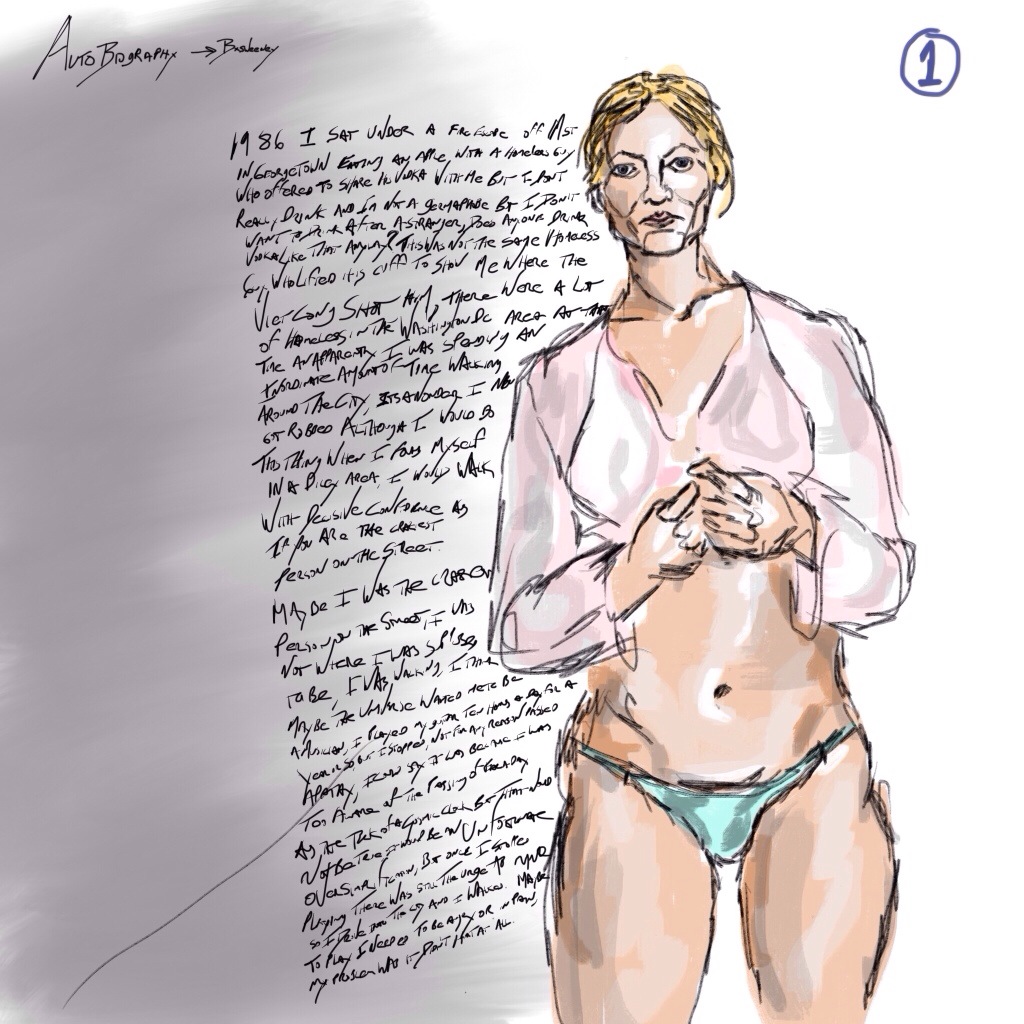 AutoBiography →
1
1986 I SAT UNDER A OFF
IN GEORGETOWN EATING AN APPLE, WITH A HOMELESS GUY
WHO OFFERED TO SHARE HIS VODKA WITH ME BUT I DON'T
REALLY DRINK AND I'M NOT A GERMAPHOBE BUT I DON'T
WANT TO DRINK AFTER A STRANGER, DOES ANYONE DRINK
VODKA LIKE THAT ANYWAY? THIS WAS NOT THE SAME HOMELESS
GUY WHO LIFTED HIS CUFF TO SHOW ME WHERE THE
VIET CONG SHOT HIM, THERE WERE A LOT
OF HOMELESS IN THE WASHINGTON DC AREA AT THAT
TIME AN APPARENTLY I WAS SPENDING AN
INORDINATE AMOUNT OF TIME WALKING
AROUND THE CITY, ITS A WONDER I
GOT ROBBED ALTHOUGH I WOULD DO
THIS THING WHEN I MYSELF
IN A DICEY AREA, I WOULD WALK
WITH DECISIVE CONFIDENCE AS
IF YOU ARE THE CRAZIEST
PERSON ON THE STREET.
MAYBE I WAS THE
PERSON ON THE STREET, IT WAS
NOT WHERE I WAS SUPPOSED
TO BE, I WAS WALKING, I THINK
MAYBE THE UNIVERSE WANTED ME TO BE
A MUSICIAN, I PLAYED MY GUITAR TEN HOURS A DAY FOR A
YEAR OR SO BUT I STOPPED, NOT FOR ANY REASON
APATHY, I CAN SAY IT WAS BECAUSE I WAS
TOO AWARE OF THE PASSING OF EACH DAY
AS THE TICK OF A COSMIC CLOCK BUT THAT WOULD
NOT BE TRUE IT WOULD BE AN UNFORTUNATE
OVERSIMPLIFICATION, BUT ONCE I STOPPED
PLAYING THERE WAS STILL THE URGE TO
SO I DROVE INTO THE CITY AND I WALKED. MAYBE
TO PLAY I NEEDED TO BE ANGRY OR IN PAIN,
MY PROBLEM WAS IT DIDN'T HURT AT ALL.